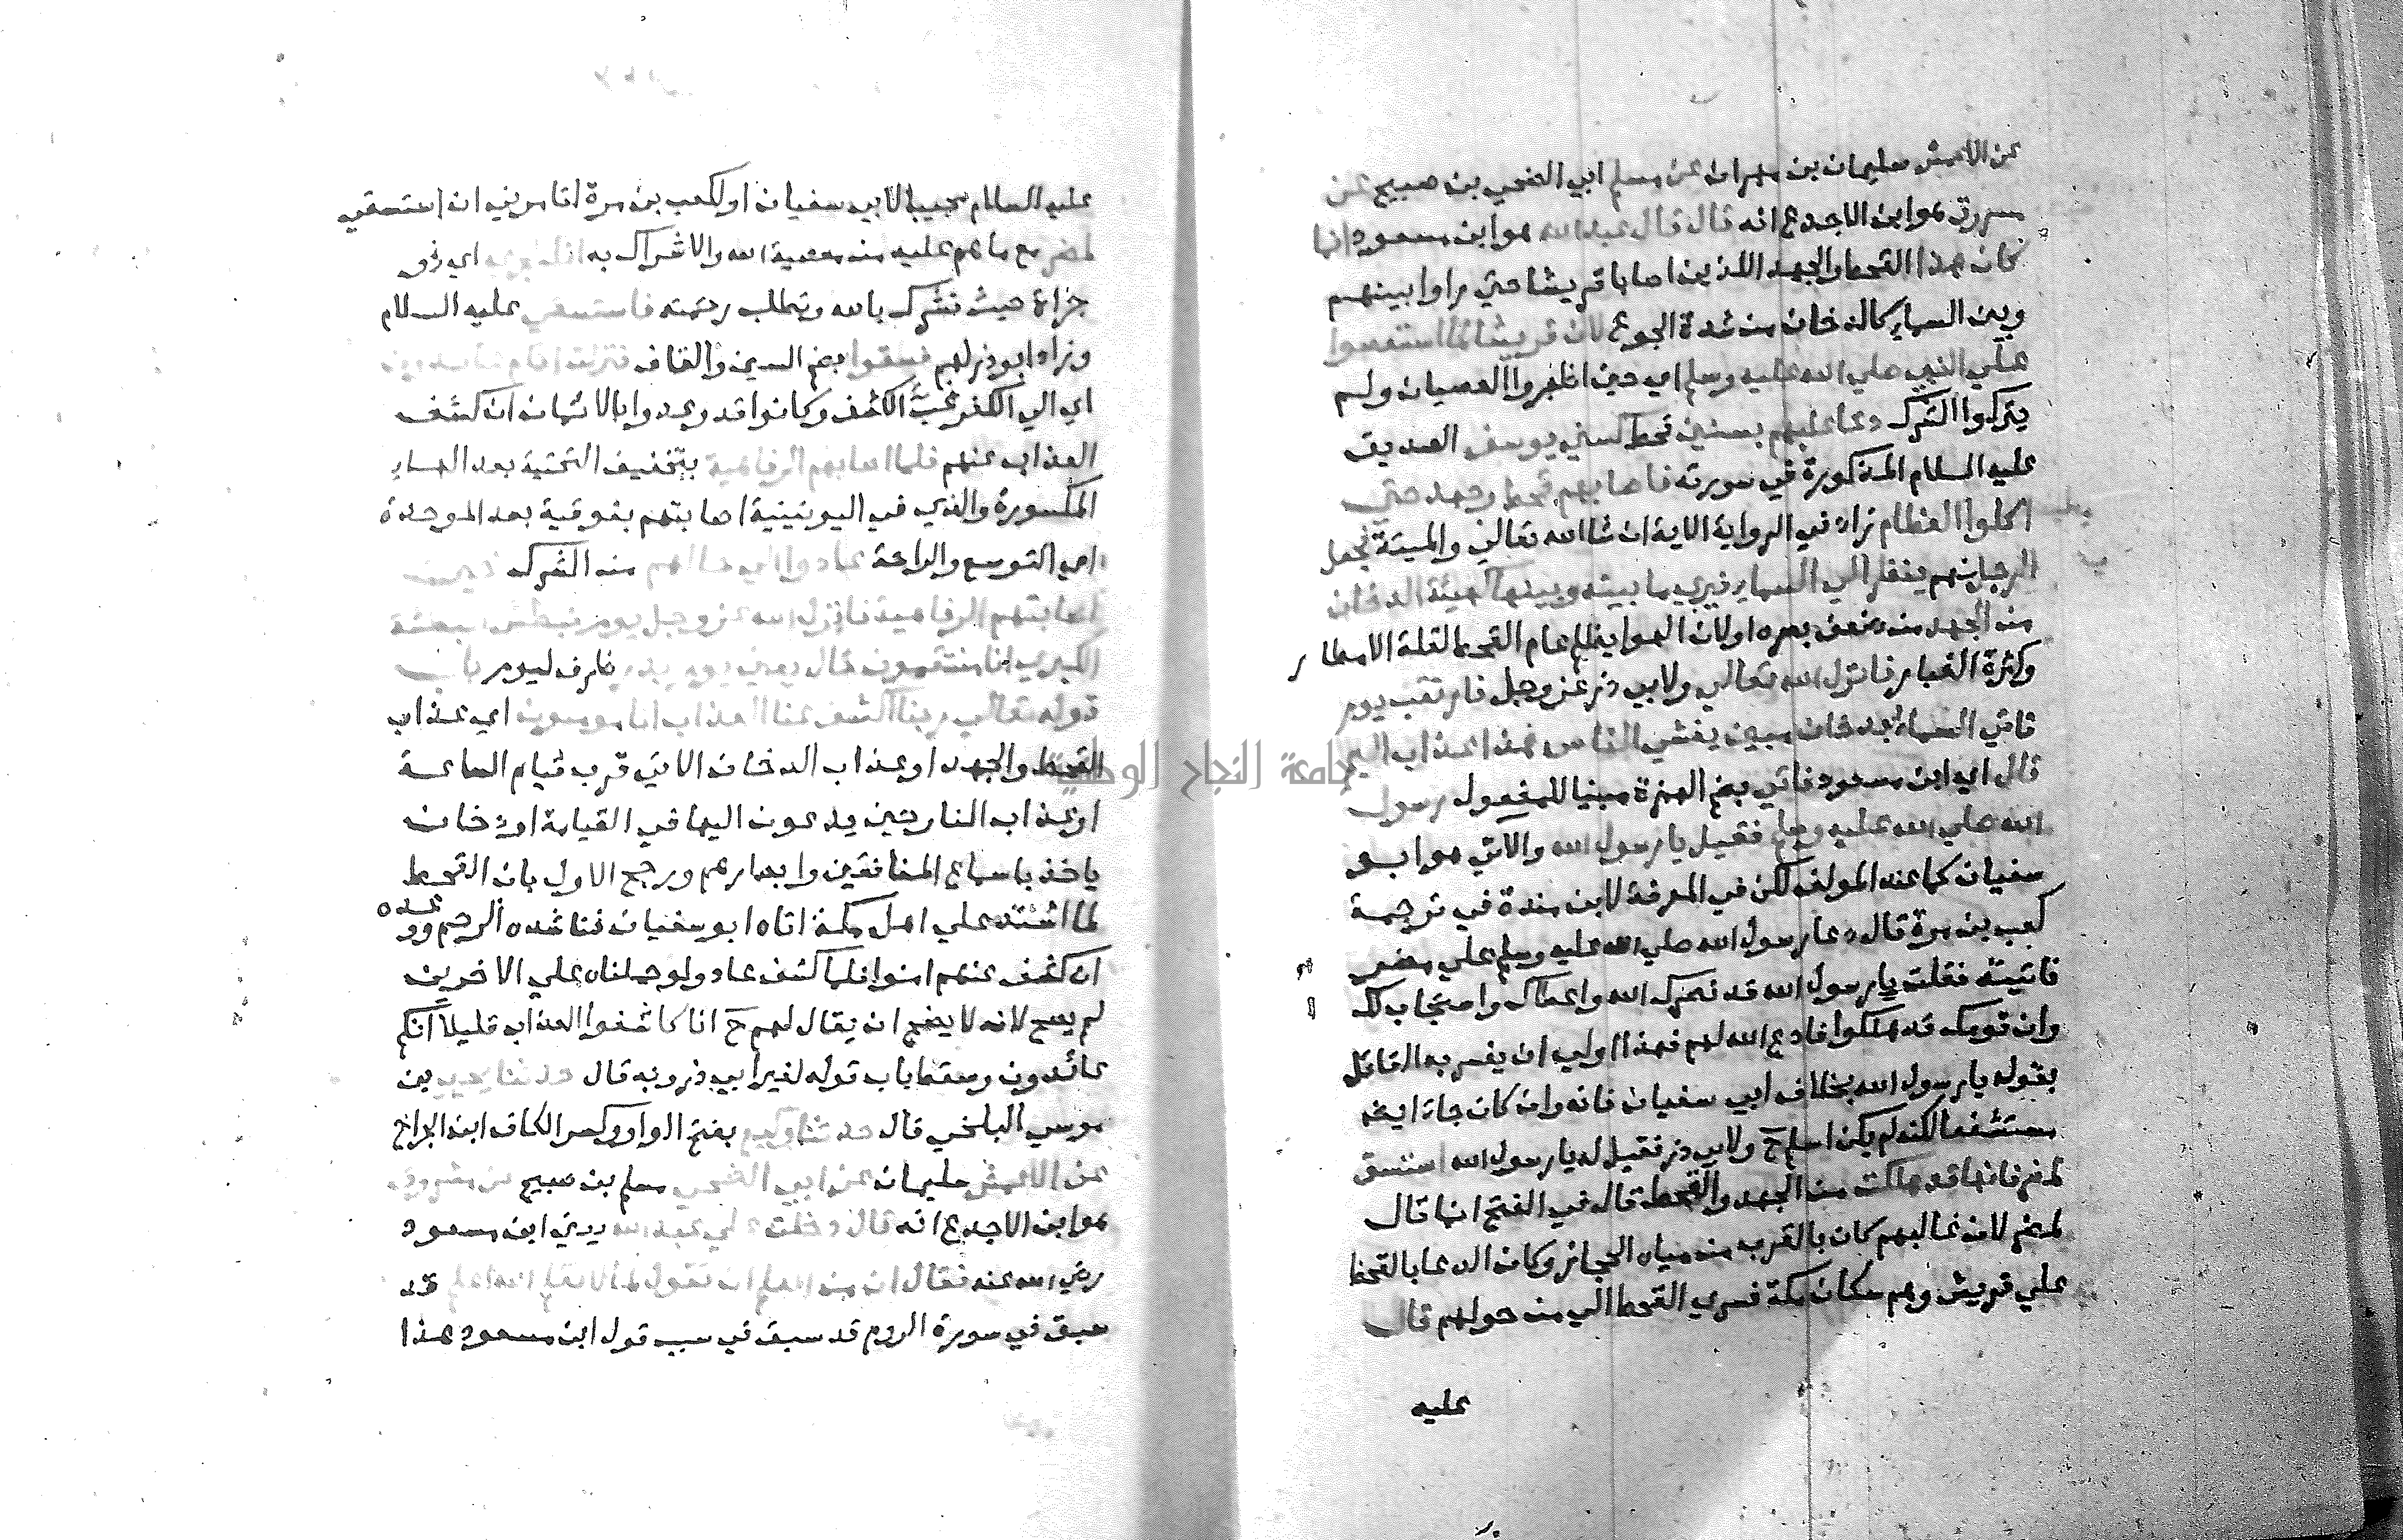 عن الاعمش سليمان بن مهران عن مسلم ابي الضحي بن صبيح عن
مسروق هو ابن الاجدع انه قال قال عبد الله هو ابن مسعود انما
كان هذا القحط والجهد اللذين اصابا قريشا حتي راوا بينهم
وبين السماء كالدخان من شدة الجوع لان قريشا لما استعصوا
علي النبي صلي الله عليه وسلم اي حين اظهروا العصيان ولم
يتركوا الشرك دعا عليهم بسنين قحط كسني يوسف الصديق
عليه السلام المذكورة في سورته فاصابهم قحط وجهد حتي
اكلوا العظام زاد في الرواية الاتية ان شا الله تعالي والميتة فجعل
الرجل منهم ينظر الي السماء فيري ما بينه وبينها كهيئة الدخان
من الجهد من ضعف بصره او لان الهوا يظلم عام القحط لقلة الامطار
وكثرة الغبار فانزل الله تعالي ولابي ذر عز وجل فارتقب يوم
تاتي السماء بدخان مبين يغشي الناس هذا عذاب اليم
قال اي ابن مسعود فاتي بضم الهمزة مبنيا للمفعول رسول
الله صلي الله عليه وسلم فقيل يا رسول الله والاتي هو ابو
سفيان كما عند المولف لكن في المعرفة لابن مندة في ترجمة
كعب بن مرة قال دعا رسول الله صلي الله عليه وسلم علي مضر
فاتيته فقلت يا رسول الله قد نصرك الله واعطاك واستجاب لك
وان قومك قد هلكوا فادع الله لهم فهذا اولي ان يفسر به القائل
بقوله يا رسول الله بخلاف ابي سفيان فانه وان كان جاء ايضا
مستشفعا لكنه لم يكن اسلم ح ولابي ذر فقيل له يا رسول الله استسق
لمضر فانها قد هلكت من الجهد والقحط قال في الفتح انما قال
لمضر لان غالبهم كان بالقرب من مياه الحجاز وكان الدعا بالقحط
علي قريش وهم سكان مكة فسري القحط الي من حولهم قال
عليه
عليه السلام مجيبا لابي سفيان او لكعب بن مرة اتامرني ان استسقي
لمضر مع ما هم عليه من معصية الله والاشراك به انك لجري اي ذو
جراة حيث تشرك بالله وتطلب رحمته فاستسقي عليه السلام
وزاد ابو ذر لهم فسقوا بضم السين والقاف فنزلت انكم عائدون
اي الي الكفر غبّ الكشف وكانوا قد وعدوا بالايمان ان كشف
العذاب عنهم فلما اصابهم الرفاهية بتخفيف التحتية بعد الهاء
المكسورة والذي في اليونينية اصابتهم بفوقية بعد الموحدة
اي التوسع والراحة عادوا الي حالهم من الشرك حين
اصابتهم الرفاهية فانزل الله عز وجل يوم نبطش البطشة
الكبري انا منتقمون قال يعني يوم بدر ظرف ليوم باب
قوله تعالي ربنا اكشف عنا العذاب انا مومنون اي عذاب
القحط والجهد او عذاب الدخان الاتي قرب قيام الساعة
او عذاب النار حين يدعون اليها في القيامة او دخان
ياخذ باسماع المنافقين وابصارهم ورجح الاول بان القحط
لما اشتد علي اهل مكة اتاه ابو سفيان فناشده الرحم ووعده
ان كشف عنهم امنوا فلما كشف عادوا ولو حملناه علي الاخرين
لم يصح لانه لا يصح ان يقال لهم ح انا كاشفوا العذاب قليلا انكم
عائدون وسقط باب قوله لغير ابي ذر وبه قال حدثنا يحيي بن
موسي البلخي قال حدثنا وكيع بفتح الواو وكسر الكاف ابن الجراح
عن الاعمش سليمان عن ابي الضحي مسلم بن صبيح عن مسروق
هو ابن الاجدع انه قال دخلت علي عبد الله يريد ابن مسعود
رضي الله عنه فقال ان من العلم ان تقول لما لا تعلم الله اعلم قد
سبق في سورة الروم قد سبق في سبب قول ابن مسعود هذا
جامعة النجاح الوطنية